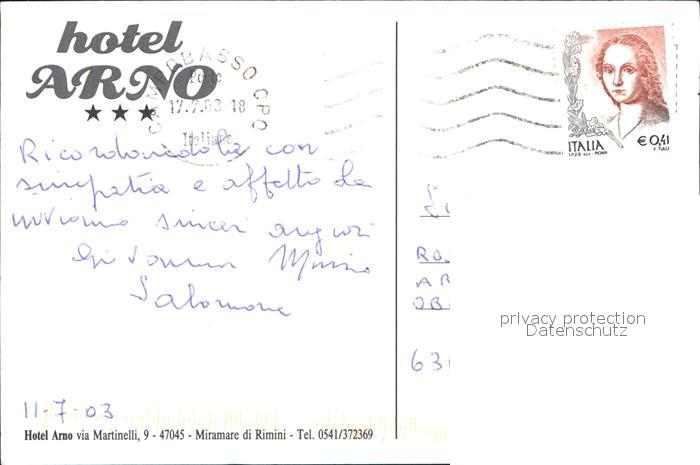 hotel
ARNO
CAMPOBASSO CPO
Poste
17.7.03 18
Italiane
ITALIA
€0,41
I.P.Z.S. S.p.A. - ROMA
F. TULLI
Ricordandola con
simpatia e affetto le
inviamo sinceri auguri
Giovanna
Salomone
RO
AR
OB
privacy protection
Datenschutz
63
11-7-03
Hotel Arno via Martinelli, 9 - 47045 - Miramare di Rimini - Tel. 0541/372369